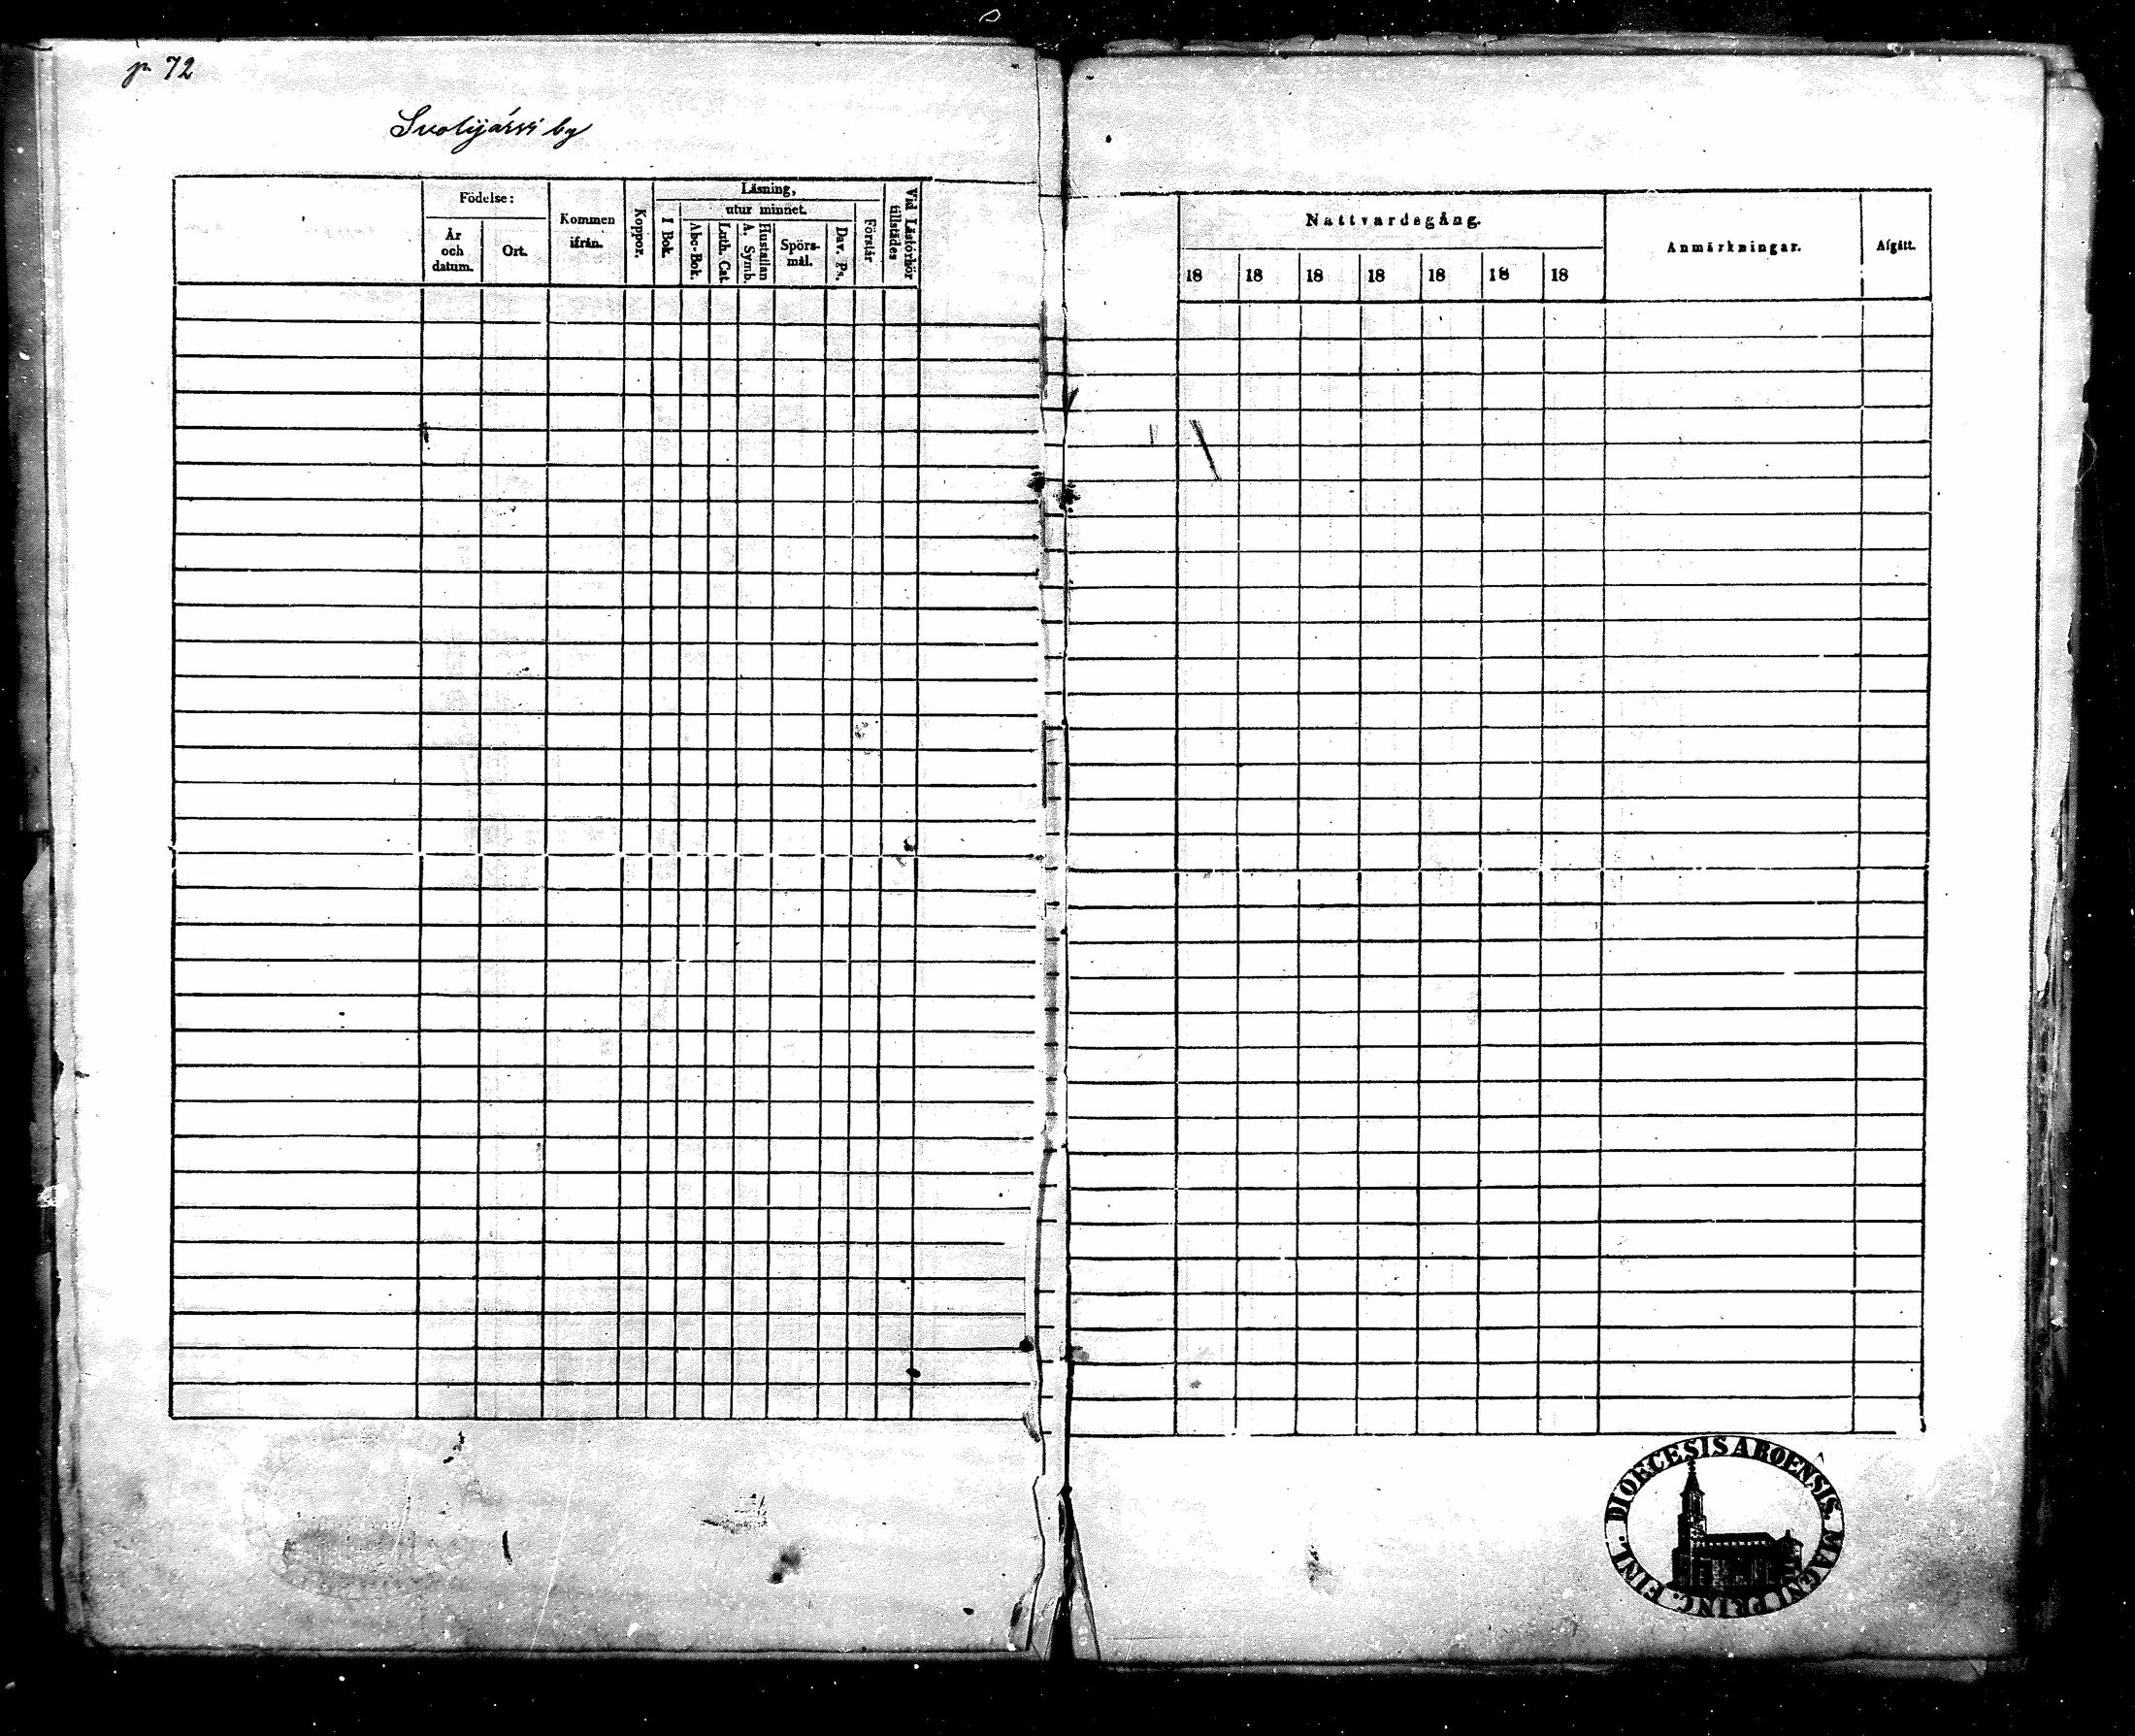 p 72
Suolijärvi by
Födelse:
År och datum.
Ort.
Kommen ifrån.
Koppor.
Läsning,
I Bok.
utur minnet.
Abc-Bok.
Luth. Cat.
Hustaflan
A. Symb.
Spörs-
mål.
Dav. Ps.
Förstår
Vid Läsförhör
tillstädes
Nattvardsgång.
18 18 18 18 18 18 18
Anmärkningar.
Afgått.
DIOECESIS ABOENSIS. MAGNI PRINC. FINL.